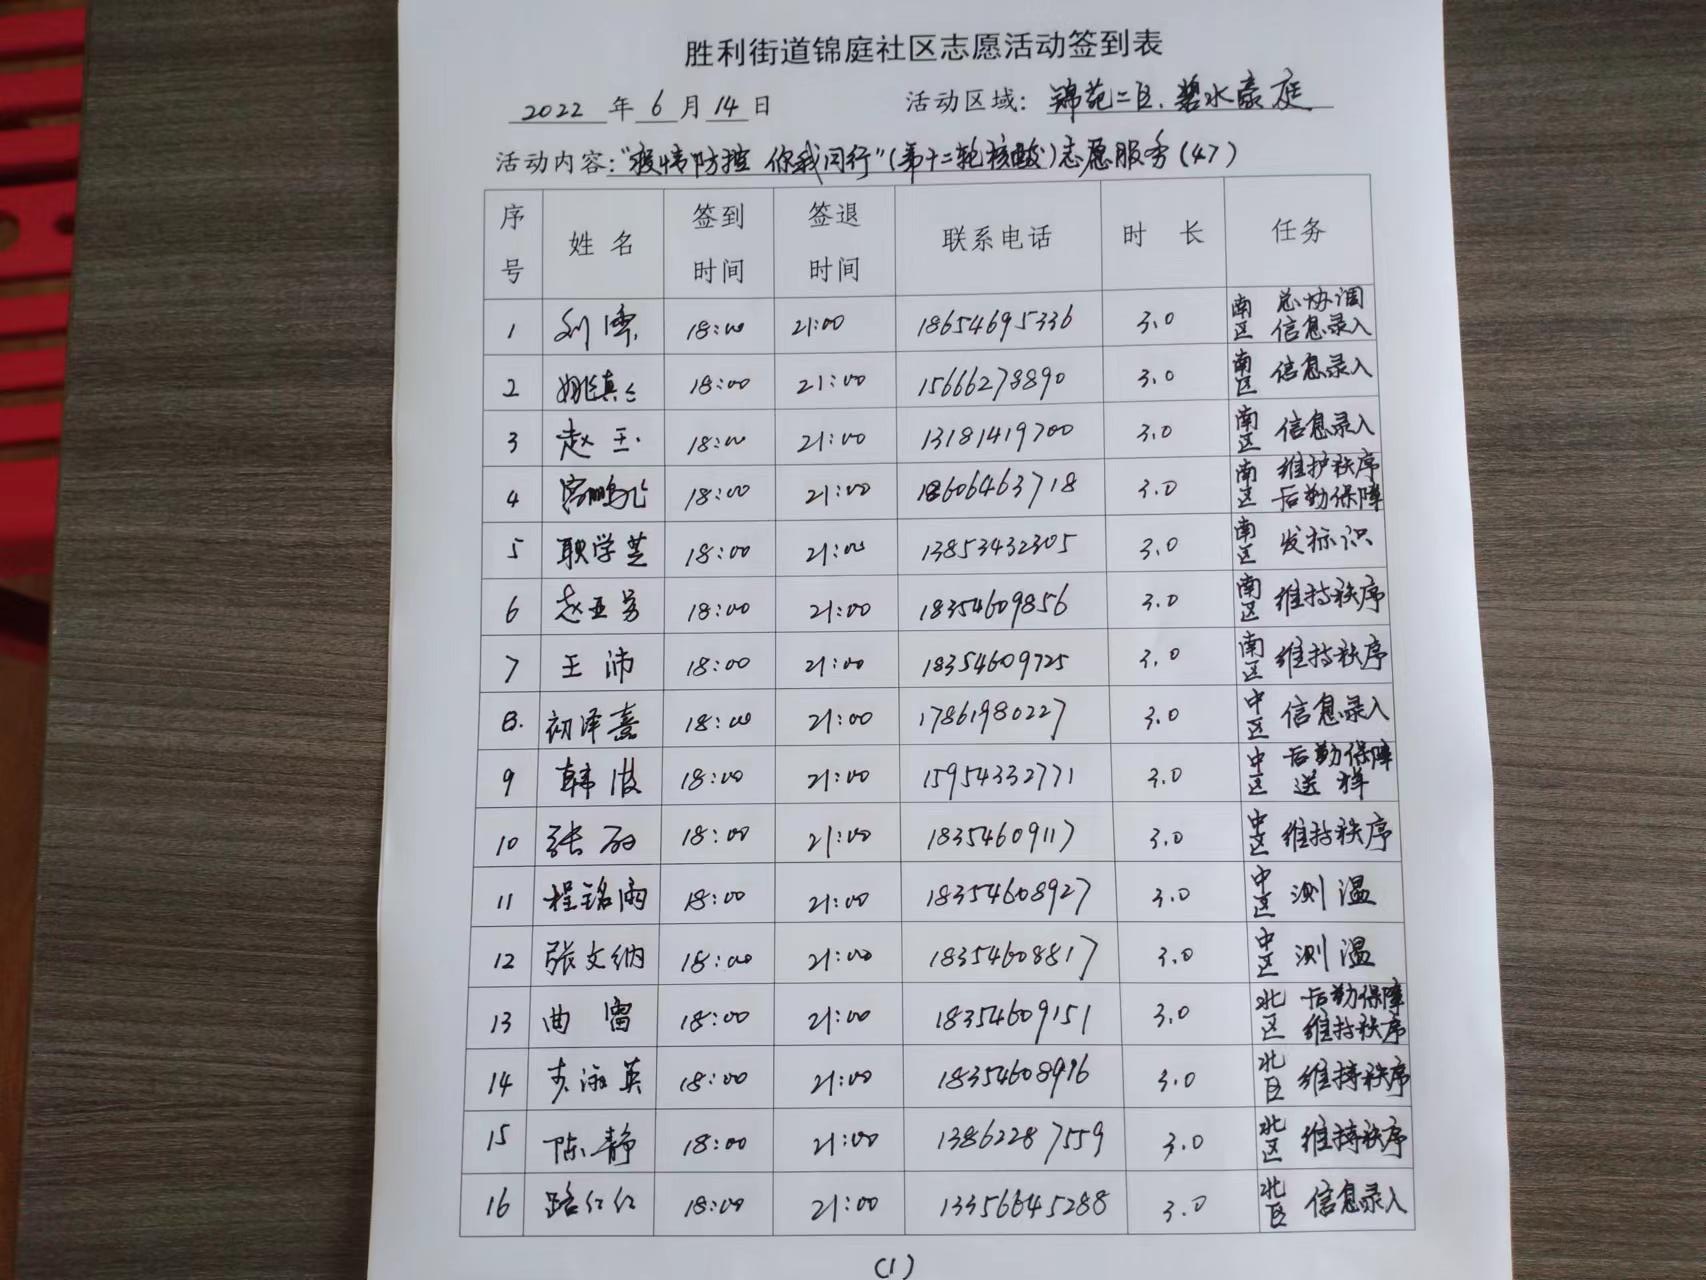 胜利街道锦庭社区志愿活动签到表
2022 年 6 月 14 日 活动区域: 锦苑二区、碧水豪庭
活动内容:"疫情防控 你我同行"(第十二轮核酸)志愿服务(47)
序号 姓名 签到时间 签退时间 联系电话 时 长 任务
1 刘 18:00 21:00 18654695336 3.0 南区 总协调 信息录入
2 姚真真 18:00 21:00 15666278890 3.0 南区 信息录入
3 赵玉 18:00 21:00 13181419700 3.0 南区 信息录入
4 鹏飞 18:00 21:00 18606463718 3.0 南区 维护秩序 后勤保障
5 耿学芝 18:00 21:00 13853432305 3.0 南区 发标识
6 赵亚男 18:00 21:00 18354609856 3.0 南区 维持秩序
7 王沛 18:00 21:00 18354609725 3.0 南区 维持秩序
8. 初泽熹 18:00 21:00 17861980227 3.0 中区 信息录入
9 韩波 18:00 21:00 15954332771 3.0 中区 后勤保障 送样
10 张丽 18:00 21:00 18354609117 3.0 中区 维持秩序
11 程铭雨 18:00 21:00 18354608927 3.0 中区 测温
12 张文纳 18:00 21:00 18354608817 3.0 中区 测温
13 曲雷 18:00 21:00 18354609151 3.0 北区 后勤保障 维持秩序
14 淑英 18:00 21:00 18354608996 3.0 北区 维持秩序
15 陈静 18:00 21:00 13862287559 3.0 北区 维持秩序
16 路红红 18:00 21:00 13356645288 3.0 北区 信息录入
(1)